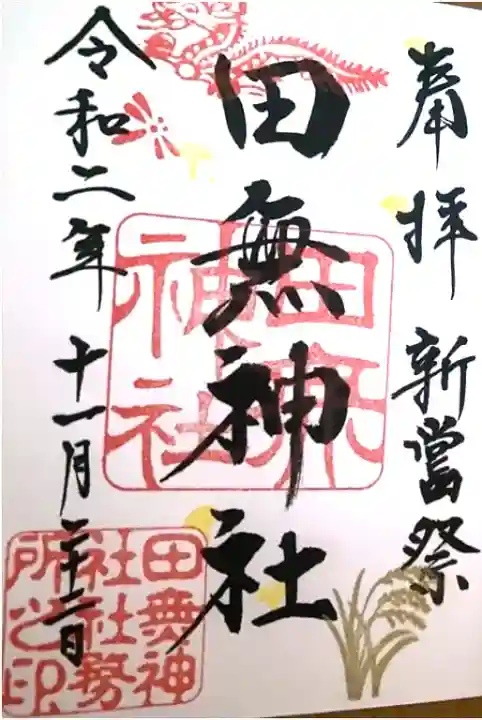 奉拝 新嘗祭
田無神社
令和二年 十一月二十三日
田無
神社
田無神
社社務
所之印